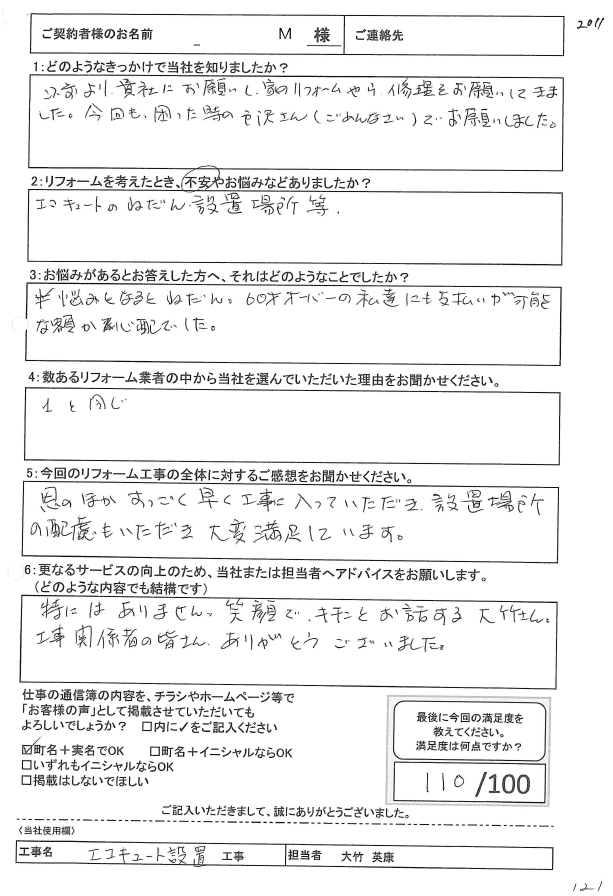 2011
ご契約者様のお名前 M 様 ご連絡先
1:どのようなきっかけで当社を知りましたか?
以前より、貴社にお願いし、家のリフォームやら、修理をお願いしてきま
した。今回も、困った時の さん(ごめんなさい)で、お願いしました。
2:リフォームを考えたとき、不安やお悩みなどありましたか?
エコキュートのねだん、設置場所等、
3:お悩みがあるとお答えした方へ、それはどのようなことでしたか?
悩みとなると ねだん。60才オーバーの私達にも支払いが可能
な額か心配でした。
4:数あるリフォーム業者の中から当社を選んでいただいた理由をお聞かせください。
1と同じ
5:今回のリフォーム工事の全体に対するご感想をお聞かせください。
思のほか すっごく 早く工事に入っていただき、設置場所
の配慮もいただき 大変満足しています。
6:更なるサービスの向上のため、当社または担当者へアドバイスをお願いします。
(どのような内容でも結構です)
特には ありません。笑顔で、キチンとお話する 大竹さん。
工事関係者の皆さん、ありがとう ございました。
仕事の通信簿の内容を、チラシやホームページ等で
「お客様の声」として掲載させていただいても
よろしいでしょうか? □内に✓をご記入ください
☑町名+実名でOK □町名+イニシャルならOK
□いずれもイニシャルならOK
□掲載はしないでほしい
最後に今回の満足度を
教えてください。
満足度は何点ですか?
110/100
ご記入いただきまして、誠にありがとうございました。
〈当社使用欄〉
工事名 エコキュート設置 工事 担当者 大竹 英康
121